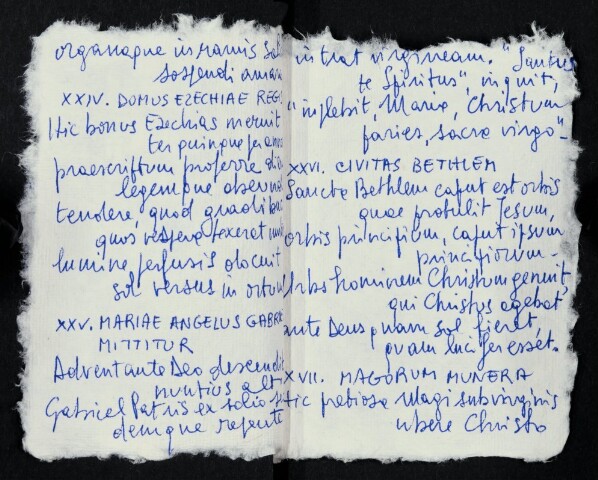 organaque in ramis sal
sospendi amari
XXIV. DOMUS EZECHIAE REGI
Hic bonus Ezechias meruit
ter quinque per annos
praescriptum proferre diem
legemque obeundi
tendere, quod gradibus
quos vespera texerat umb
lumine perfusis docuit
sol versus in ortum
XXV. MARIAE ANGELUS GABRIE
MITTITUR
Adventante Deo descendit
nuntius alti
Gabriel Patris ex solio s
demque repente
intrat virgineam. "Santus
te Spiritus", inquit,
"inplebit, Maria, Christum
paries, sacra virgo".
XXVI. CIVITAS BETHLEM
Sancta Bethlem caput est orbis
quae protulit Jesum,
orbis principium, caput ipsum
principiorum.
Urbs hominem Christum genuit,
qui Christus agebat
ante Deus quam sol fieret,
quam lucifer esset.
XXVII. MAGORUM MUNERA
Hic pretiosa Magi sub virginis
ubere Christo